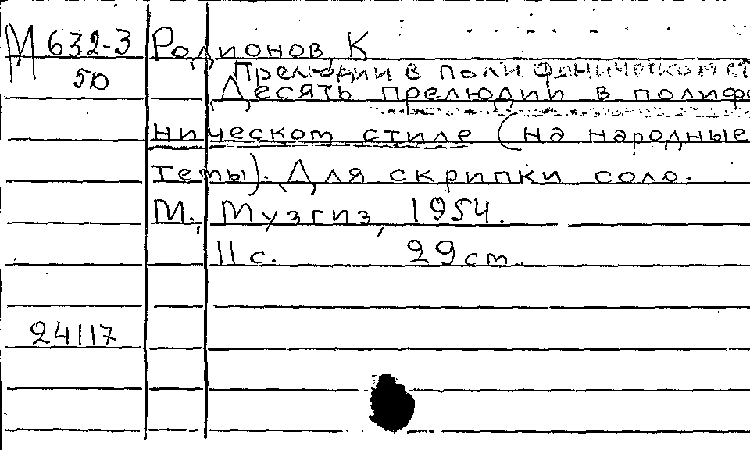 М 632-3 Родионов, К
50 Прелюдии в полифоническом ст
Десять прелюдий в полифо
ническом стиле (на народные
темы). Для скрипки соло.
М., Музгиз, 1954.
11 с. 29 см.
24117